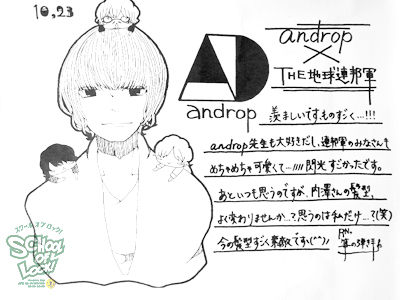 10,23
androp
×
THE 地球連邦軍
androp
羨ましいです、ものすごく…!!!
androp先生も大好きだし、連邦軍のみなさんも
めちゃめちゃ可愛くて…//// 閃光すごかったです。
あといつも思うのですが、内澤さんの髪型、
よく変わりませんか…?思うのは私だけ…?(笑)
今の髪型すごく素敵です、(^^)/
RN.
スクール オブ ロック!
SCHOOL
OF
LOCK!